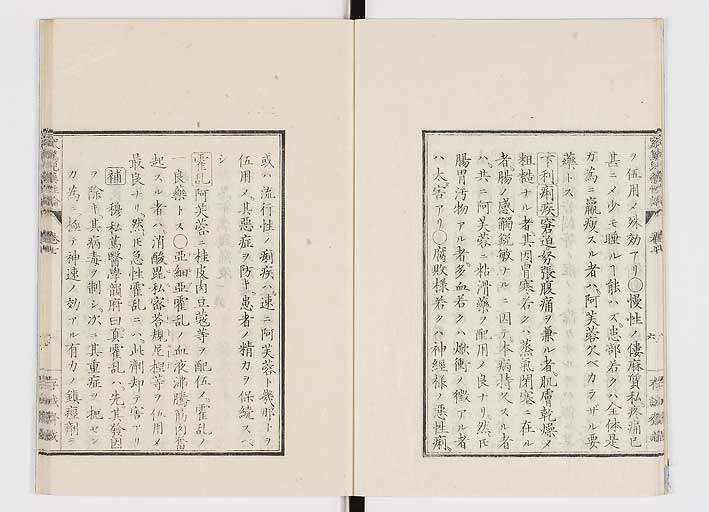 ヲ伍用メ殊効アリ○慢性ノ僂麻質私疼痛已
甚ニメ少モ睡ル丁能ハズ患部若クハ全体是
ガ為ニ羸痩スル者ハ阿芙蓉欠ベカラザル要
藥トス
下利痢疾窘迫努張腹痛ヲ兼ル者肌膚乾燥メ
粗糙ナル者其因冒寒若クハ蒸氣閉塞ニ在ル
者腸ノ感觸鋭敏ナルニ因テ本病持久スル者
ハ共ニ阿芙蓉ニ粘滑藥ヲ配用メ良ナリ然𪜈
腸胃汚物アル者多血若クハ焮衝ノ徴アル者
ハ太害アリ○腐敗様若クハ神經様ノ悪性痢
或ハ流行性ノ痢疾ハ速ニ阿芙蓉ト幾那トヲ
伍用メ其惡症ヲ防キ患者ノ精力ヲ保続スベ
シ
霍乱阿芙蓉ニ桂皮肉豆蔲等ヲ配伍メ霍乱ノ
一良藥トス○亜細亜霍乱ノ血液沸騰筋肉
起スル者ハ消酸毘私密答規尼涅等ヲ伍用メ
最良ナリ然𪜈急性霍乱ニハ此劑却テ害アリ
補 穆私篤醫學韻府曰真霍乱ハ先其發因
ヲ除キ其病毒ヲ制シ次ニ其重症ヲ抱セン
カ為ニ極テ神速ノ効アル有力ノ鎮痙劑ニ